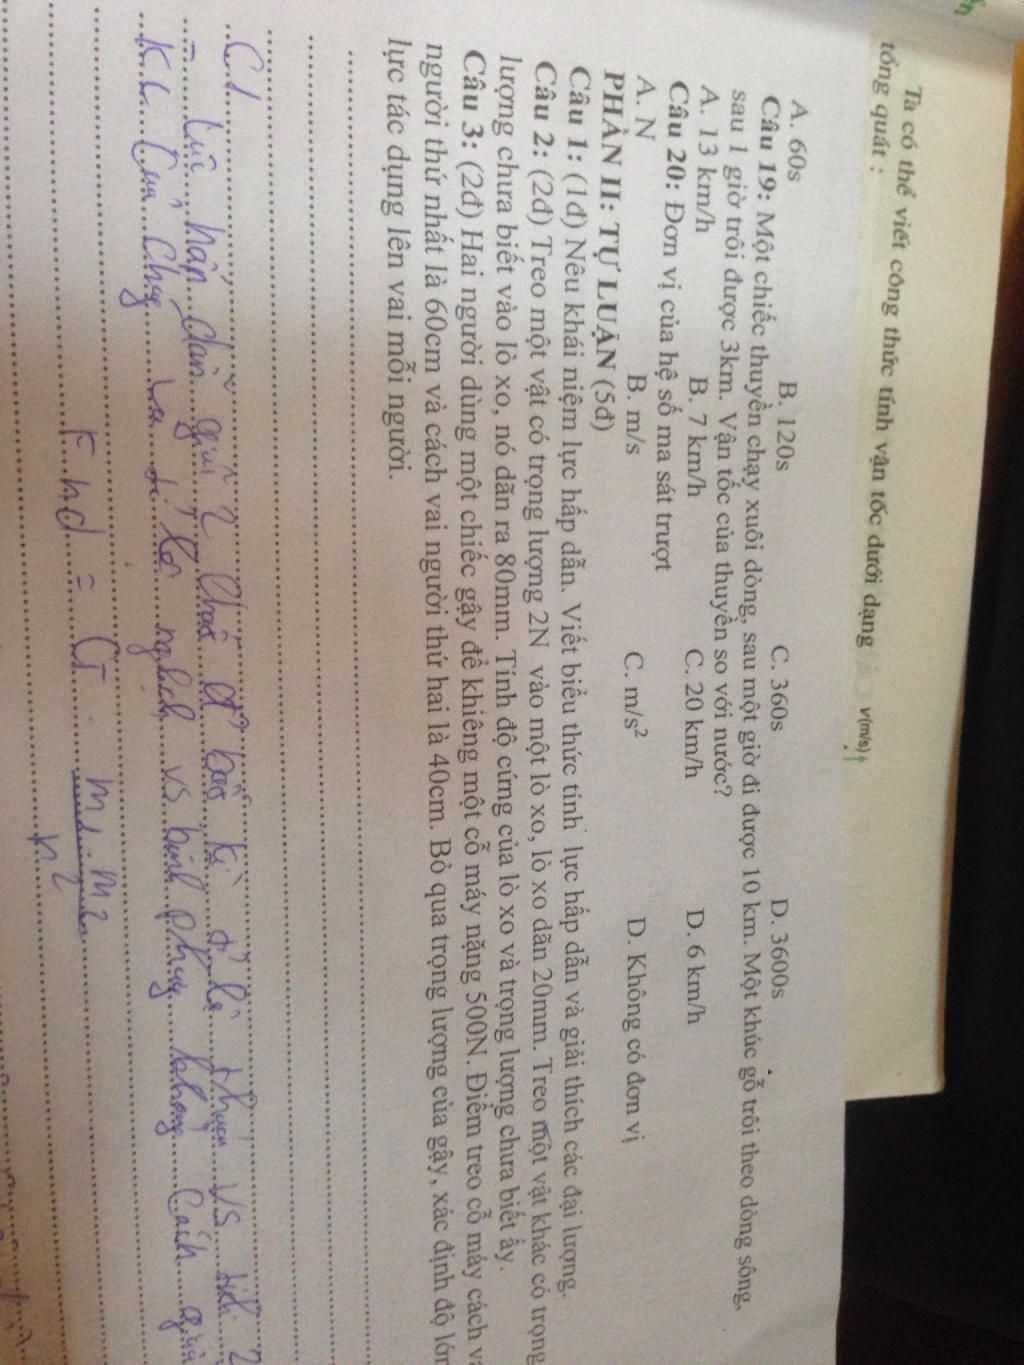 Ta có thể viết công thức tính vận tốc dưới dạng v(m/s)
tổng quát :
A. 60s B. 120s C. 360s D. 3600s
Câu 19: Một chiếc thuyền chạy xuôi dòng, sau một giờ đi được 10 km. Một khúc gỗ trôi theo dòng sông,
sau 1 giờ trôi được 3km. Vận tốc của thuyền so với nước?
A. 13 km/h B. 7 km/h C. 20 km/h D. 6 km/h
Câu 20: Đơn vị của hệ số ma sát trượt
A. N B. m/s C. m/s² D. Không có đơn vị
PHẦN II: TỰ LUẬN (5đ)
Câu 1: (1đ) Nêu khái niệm lực hấp dẫn. Viết biểu thức tính lực hấp dẫn và giải thích các đại lượng.
Câu 2: (2đ) Treo một vật có trọng lượng 2N vào một lò xo, lò xo dãn 20mm. Treo một vật khác có trọng
lượng chưa biết vào lò xo, nó dãn ra 80mm. Tính độ cứng của lò xo và trọng lượng chưa biết ấy.
Câu 3: (2đ) Hai người dùng một chiếc gậy để khiêng một cỗ máy nặng 500N. Điểm treo cỗ máy cách
người thứ nhất là 60cm và cách vai người thứ hai là 40cm. Bỏ qua trọng lượng của gậy, xác định độ lớn
lực tác dụng lên vai mỗi người.
C1
- Lực hấp dẫn giữa 2 chất đ' bất kì tỉ lệ thuận vs tích 2
KL của chúng và tỉ lệ nghịch vs bình phương khoảng cách giữa
Fhd = G. m1.m2
r2